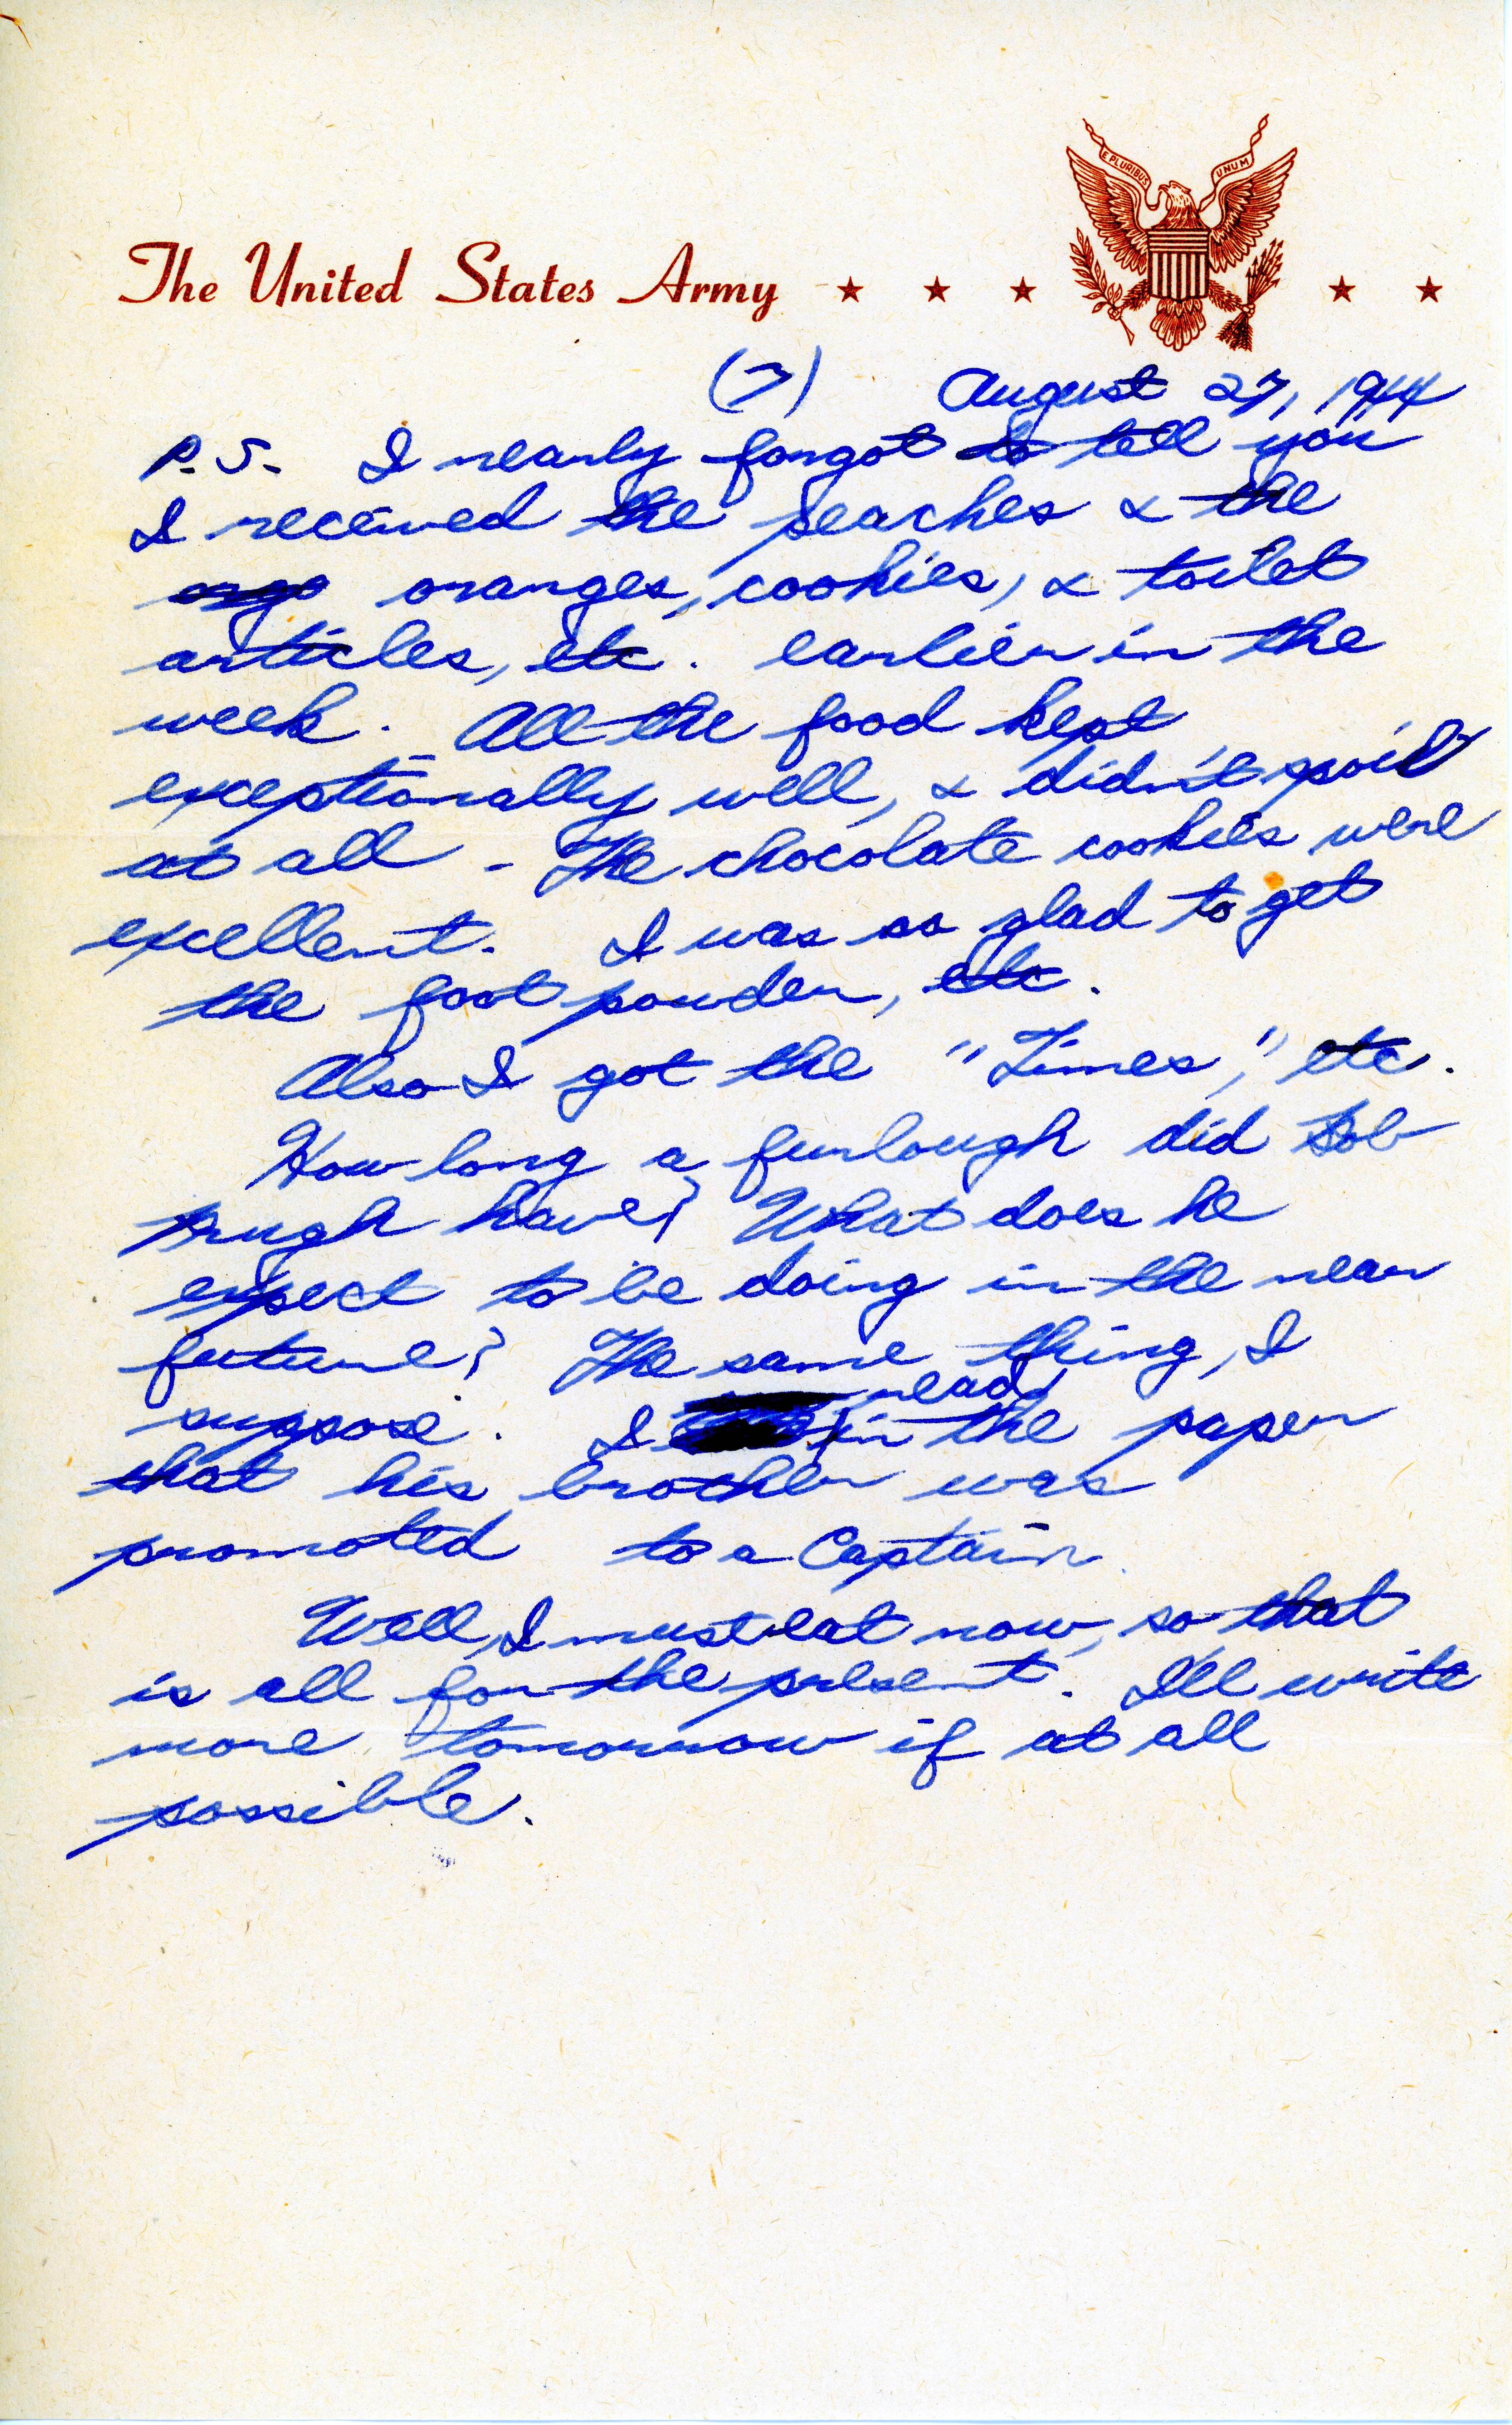 E PLURIBUS UNUM
The United States Army
(7) August 27, 1944
P.S. I nearly forgot to tell you
I received the peaches & the
oranges, cookies, & toilet
articles, etc. earlier in the
week. All the food kept
exceptionally well, & didn't spoil
at all - The chocolate cookies were
excellent. I was so glad to get
the foot powder, etc.
Also I got the "Times," etc.
How long a furlough did Bob
Pugh have? What does he
expect to be doing in the near
future? The same thing, I
suppose. I read in the paper
that his brother was
promoted to a Captain.
Well, I must eat now, so that
is all for the present. I'll write
more tomorrow if at all
possible.